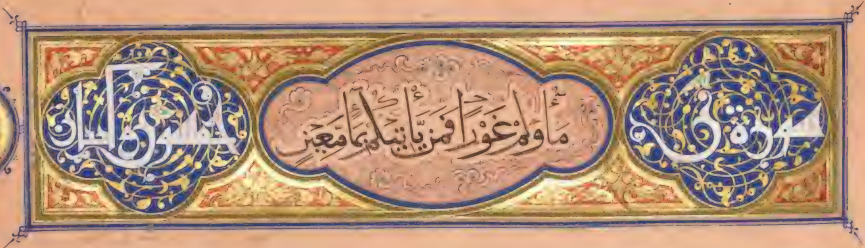 سورة ن مَاؤُكُمْ غَوْرًا فَمَن يَأْتِيكُم بِمَاءٍ مَّعِينٍ خمسون وآيتان